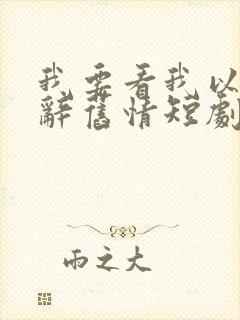 我要看我以
辭舊情短劇
雨之大